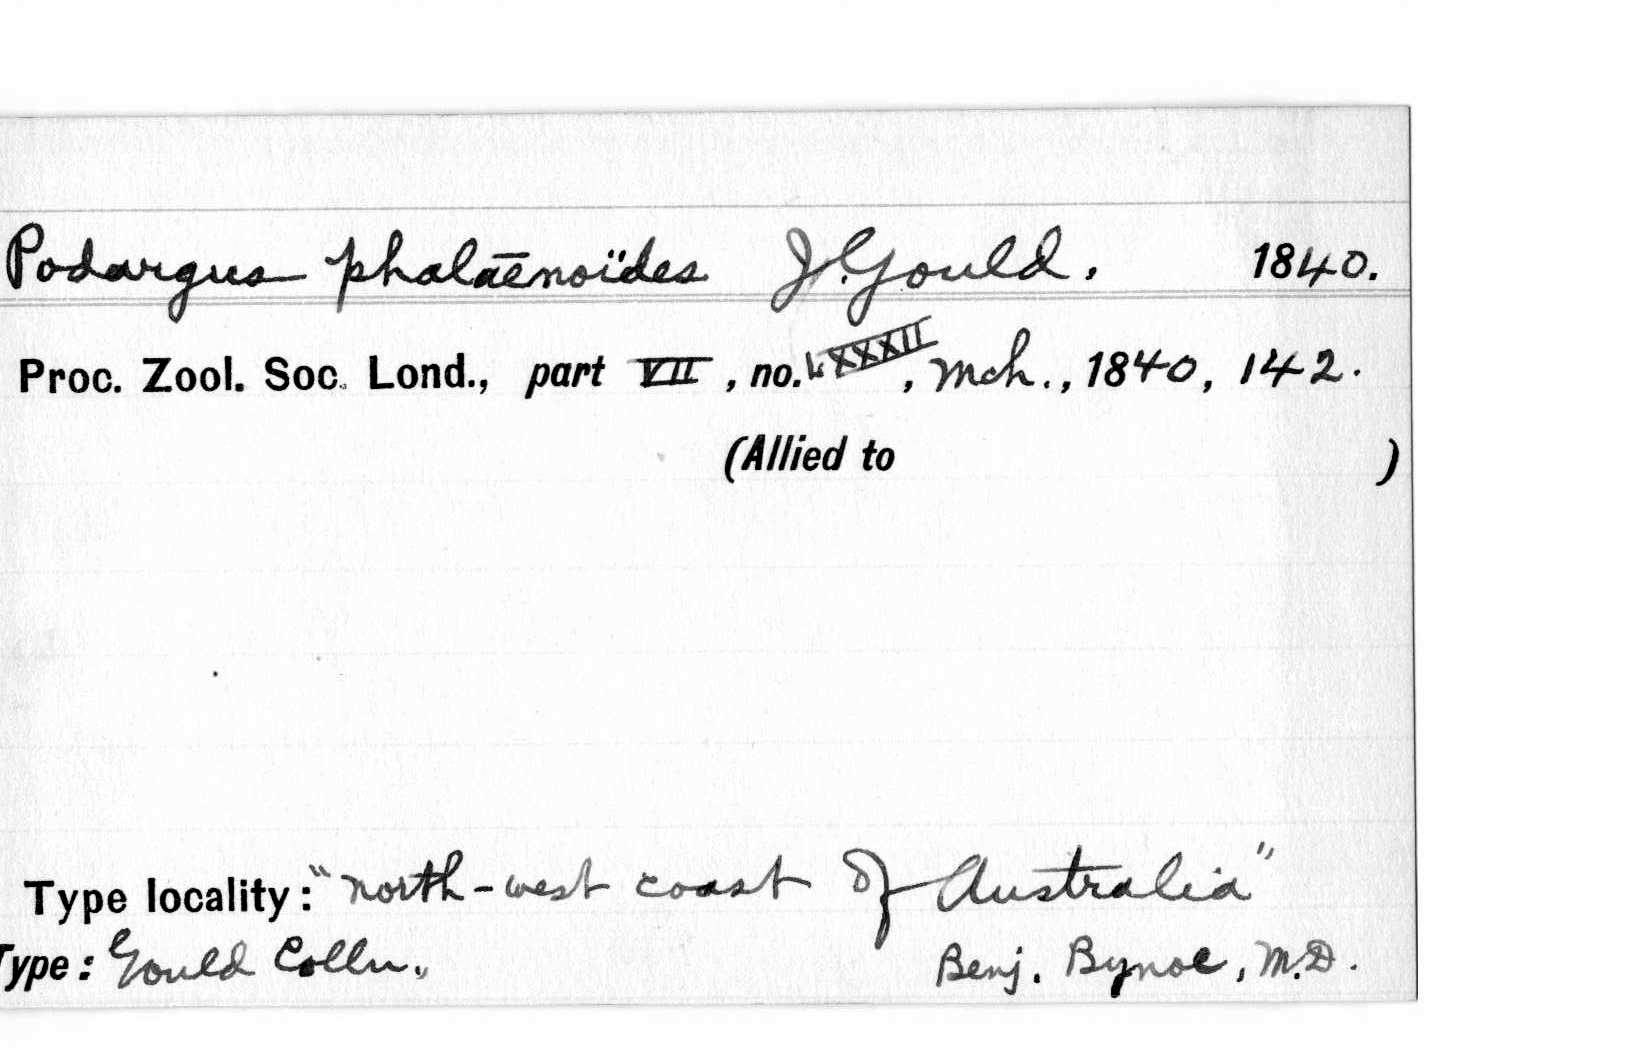 Podargus phalaenoïdes J. Gould. 1840.
Proc. Zool. Soc. Lond., part VII, no. LXXXII, Mch., 1840, 142.
(Allied to )
Type locality: "north-west coast of Australia"
Type: Gould Colln. Benj. Bynoe, M.D.